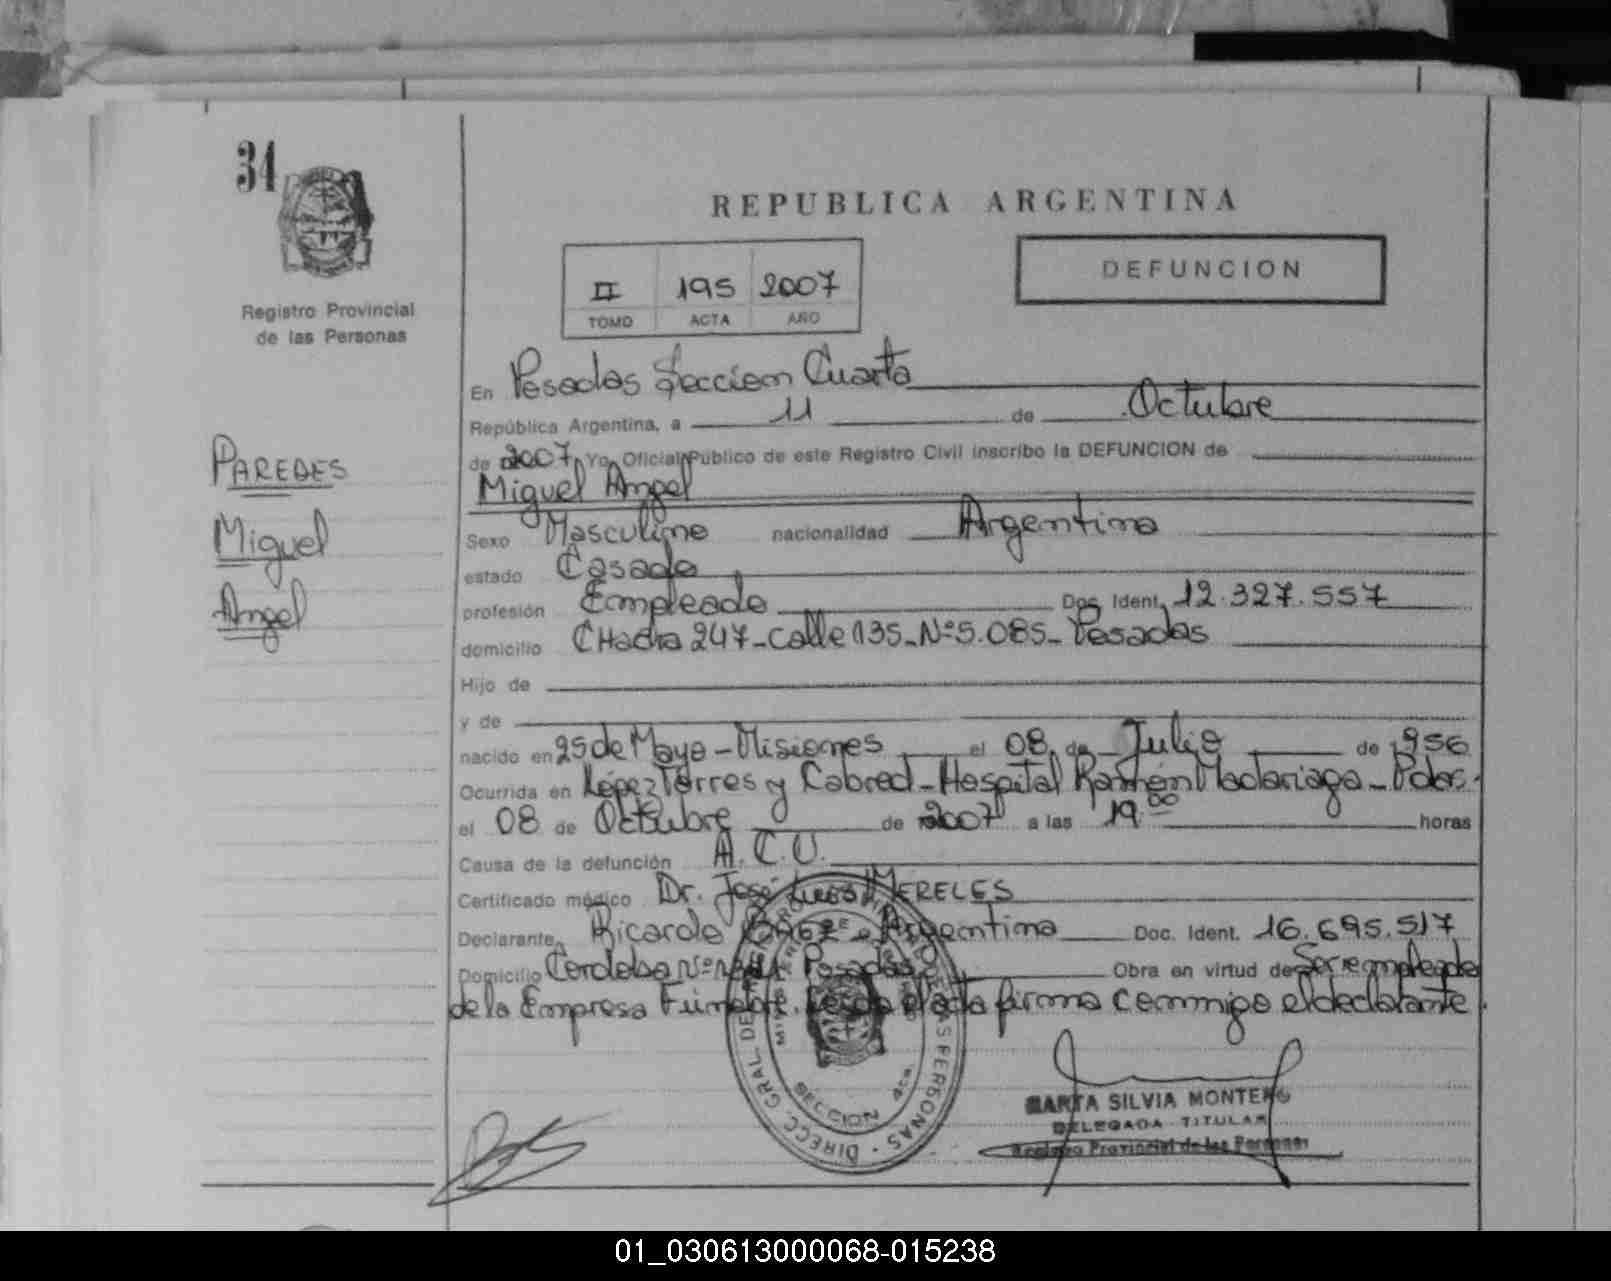 34
Registro Provincial
de las Personas
PAREDES
Miguel
Angel
REPUBLICA ARGENTINA
II 195 2007
TOMO ACTA AÑO
DEFUNCION
En Posadas Seccion Cuarta
República Argentina, a 11 de Octubre
de 2007 Yo, Oficial Público de este Registro Civil inscribo la DEFUNCION de
Miguel Angel
Sexo Masculino nacionalidad Argentina
estado Casado
profesión Empleado Doc. Ident. 12.327.557
domicilio CHacra 247-Calle 135-Nº5.085-Posadas
Hijo de
y de
nacido en 25 de Mayo-Misiones el 08 de Julio de 1956
Ocurrida en López Torres y Cabred-Hospital Ramón Madariaga-Pdas.
el 08 de Octubre de 2007 a las 19.00 horas
Causa de la defunción A.C.V.
Certificado médico Dr. José Luis MERELES
Declarante Ricardo Baez Argentino Doc. Ident. 16.695.517
Domicilio Cordoba Nº Posadas Obra en virtud de Ser empleado
de la Empresa Funebre. Leida el acta firma conmigo el declarante.
DIRECC. GRAL DE PERSONAS
SECCION 4ta.
MARTA SILVIA MONTERO
DELEGADA TITULAR
Registro Provincial de las Personas
01_030613000068-015238